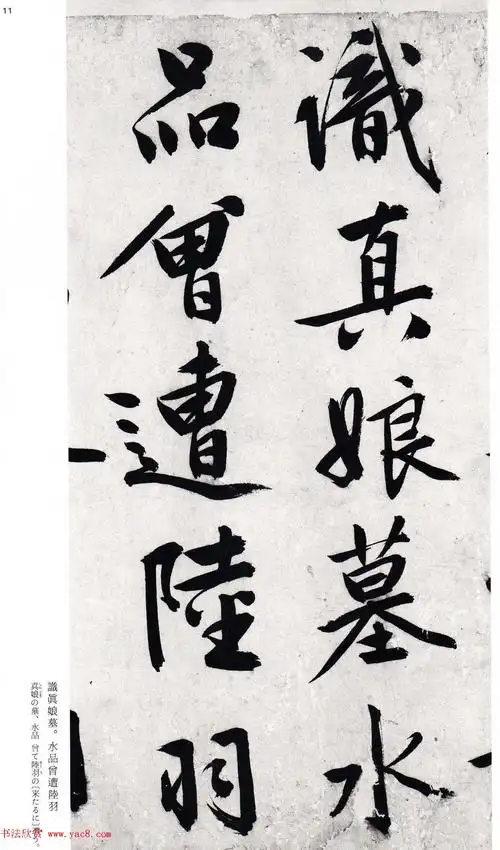 11
識真娘墓水
品曾遭陸羽
識眞娘墓。水品曾遭陸羽
真娘の墓、水品 曾て陸羽の[来たるに]遭う。
书法欣赏 www.yac8.com